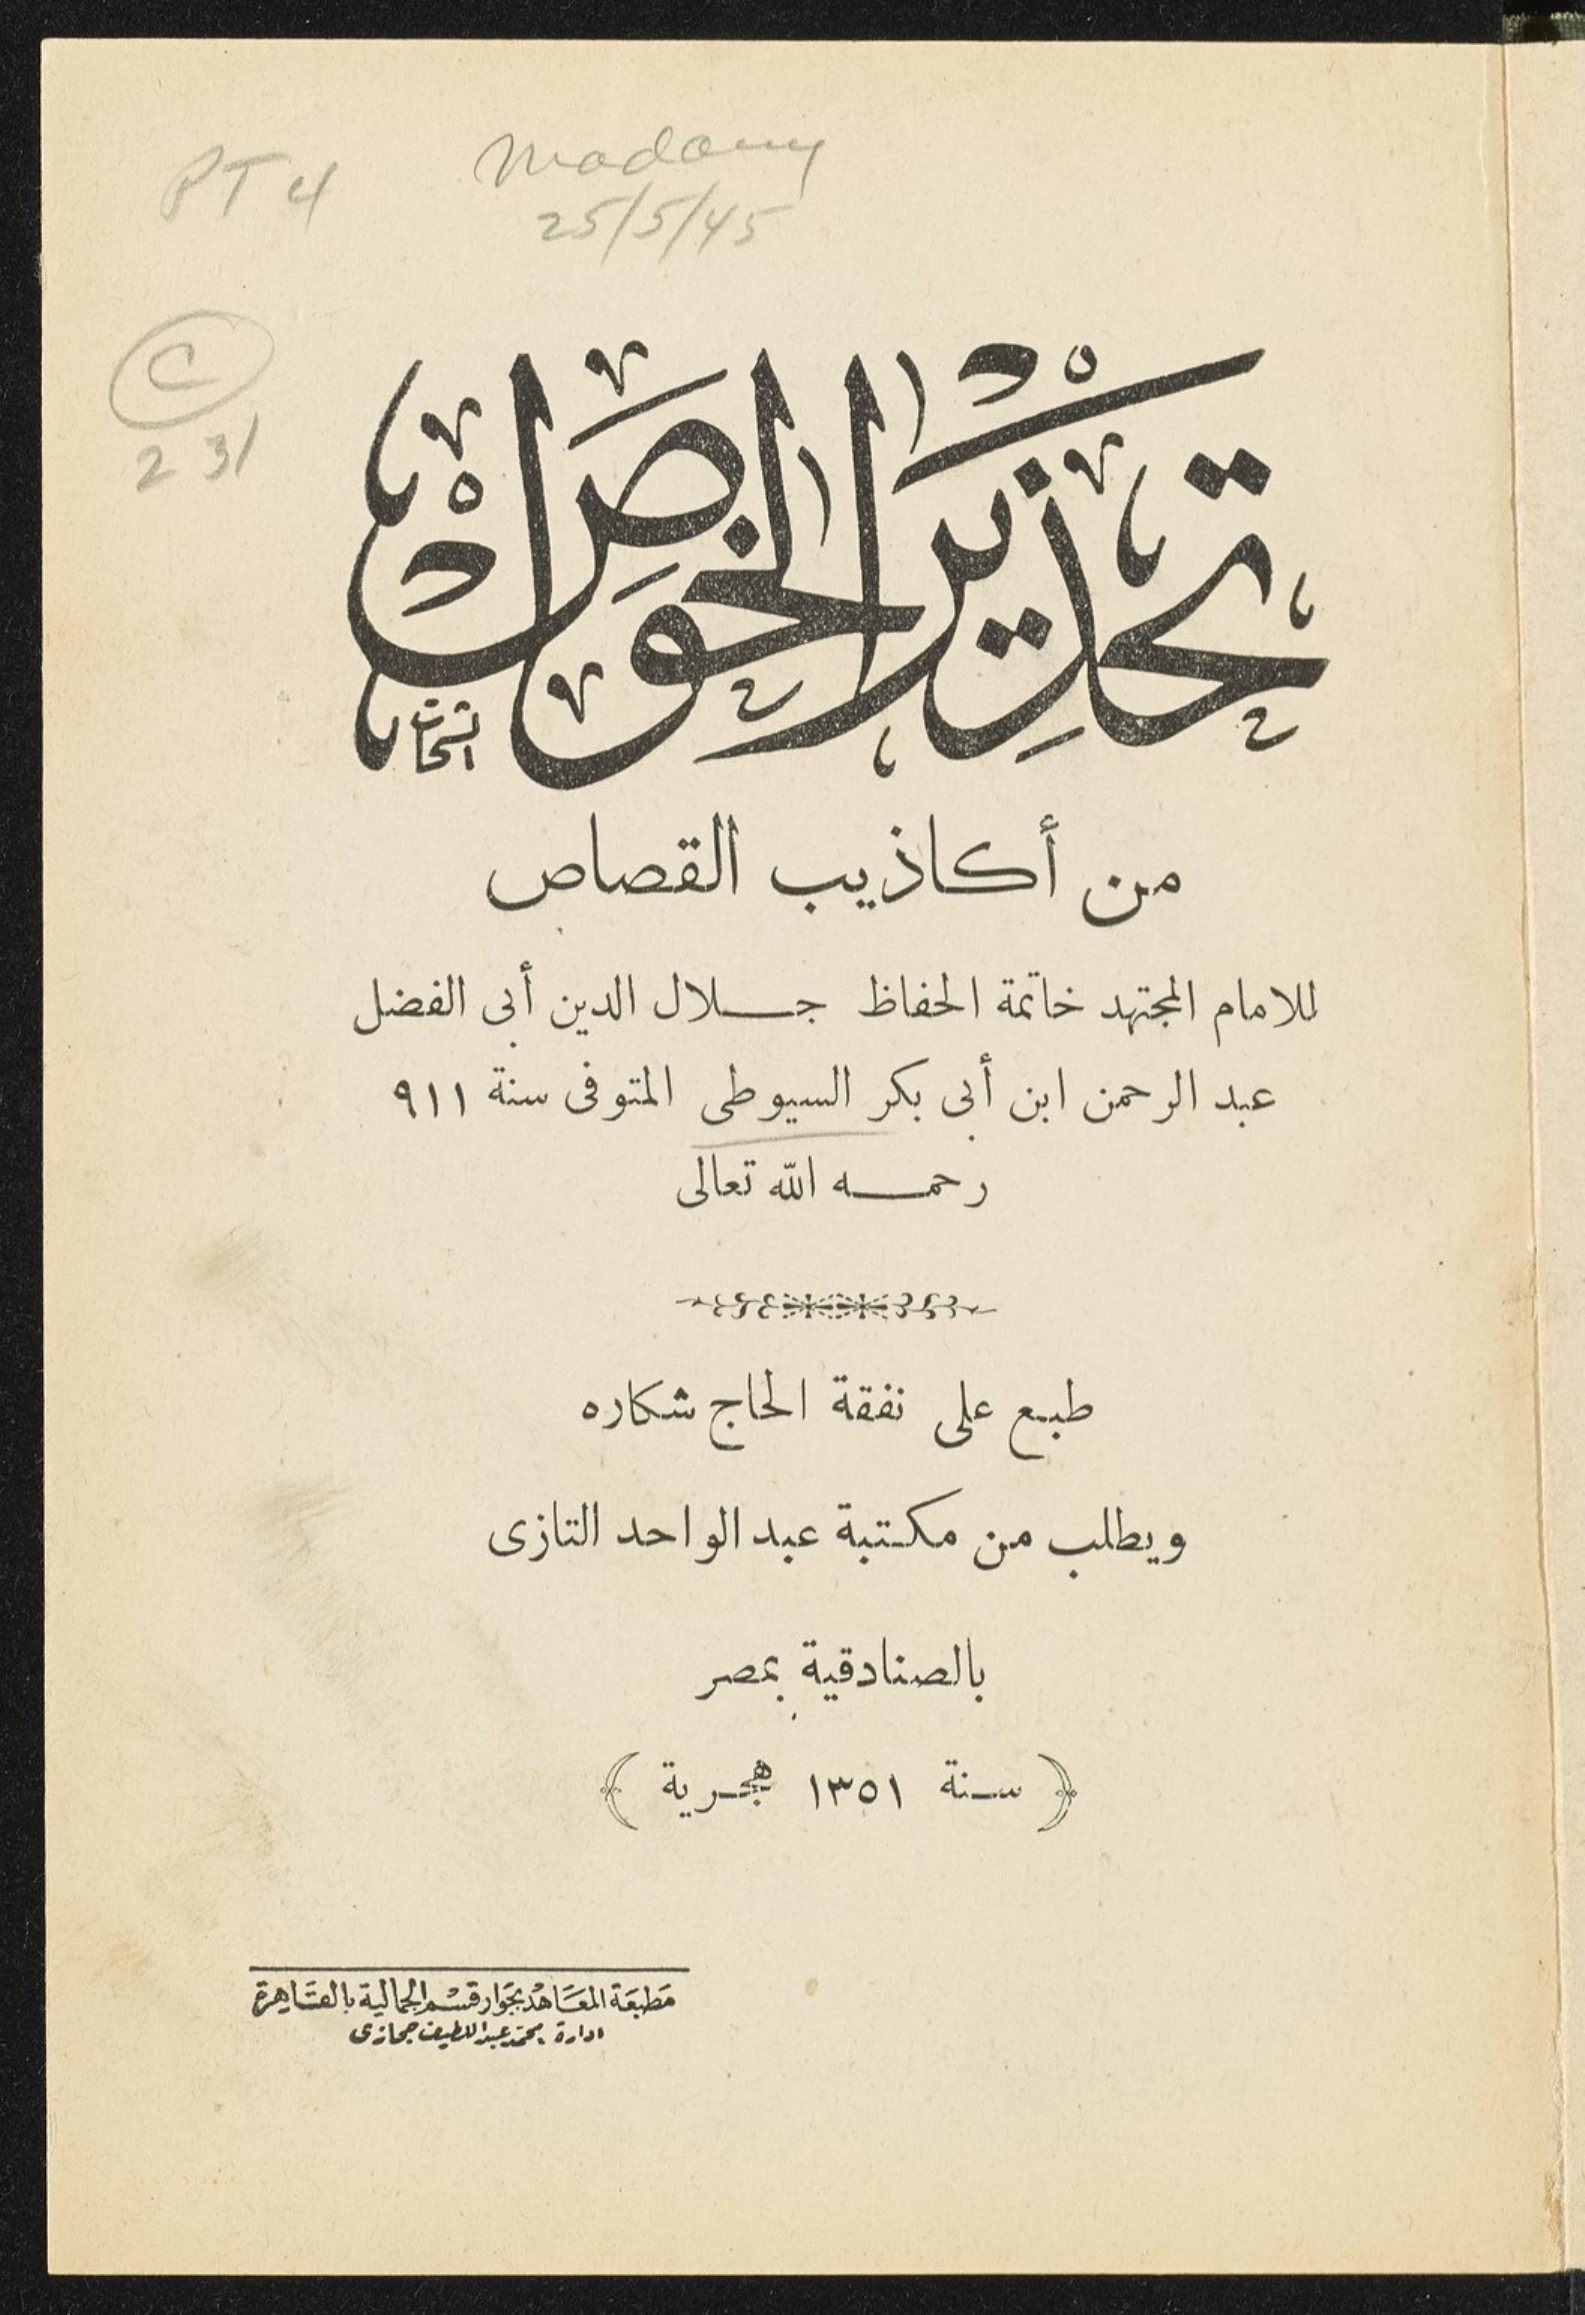 PT 4
Madany
25/5/45
C
231
تحذير الخواص
من أكاذيب القصاص
للامام المجتهد خاتمة الحفاظ جلال الدين أبى الفضل
عبد الرحمن ابن أبى بكر السيوطى المتوفى سنة ٩١١
رحمه الله تعالى
طبع على نفقة الحاج شكاره
ويطلب من مكتبة عبد الواحد التازى
بالصنادقية بمصر
﴿ سنة ١٣٥١ هجرية ﴾
مطبعة المعاهد بجوار قسم الجمالية بالقاهرة
ادارة محمد عبد اللطيف حجازى